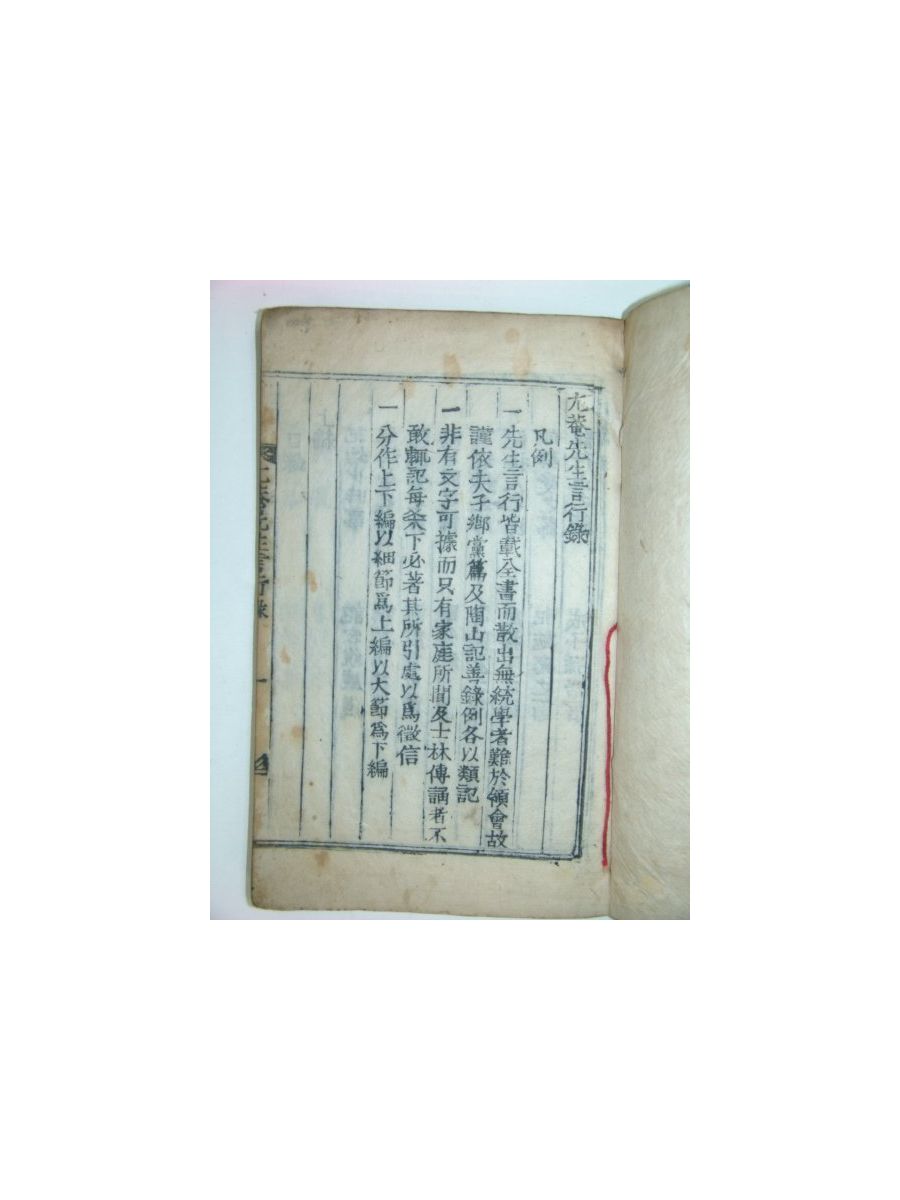 尤菴先生言行錄
凡例
一先生言行皆載全書而散出無統學者難於領會故
謹依夫子鄕黨篇及陶山記善錄例各以類記
一非有文字可據而只有家庭所聞及士林傳誦者不
敢輒記每条下必著其所引處以爲徵信
一分作上下編以細節爲上編以大節爲下編
尤菴先生言行錄
一